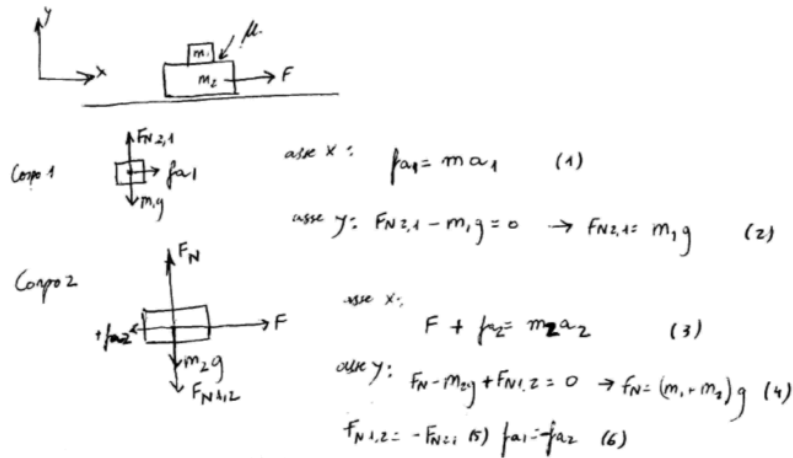 y
x
m₁
μ
m₂
F
Corpo 1
F_N2,1
fa1
m₁g
asse x: fa1 = m a₁ (1)
asse y: F_N2,1 - m₁g = 0 → F_N2,1 = m₁g (2)
Corpo 2
F_N
+fa2
F
m₂g
F_N1,2
asse x:
F + fa2 = m₂a₂ (3)
asse y: F_N - m₂g + F_N1,2 = 0 → f_N = (m₁ + m₂)g (4)
F_N1,2 = -F_N2,1 (5) fa1 = -fa2 (6)